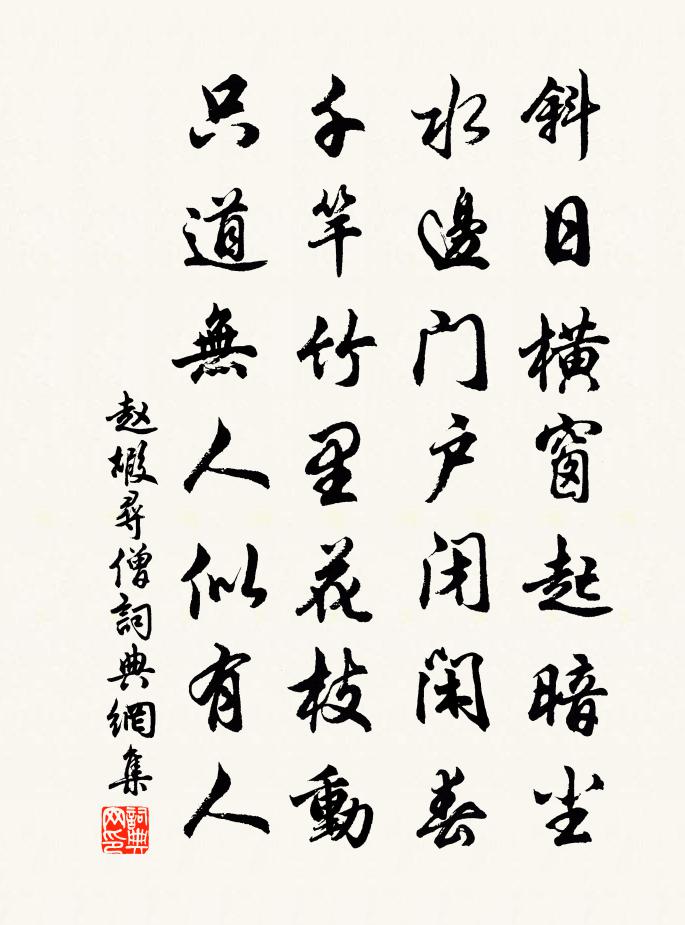 斜日横窗起暗尘
水邊门户闭闲春
千竿竹里花枝動
只道無人似有人
赵嘏尋僧詞典網集
詞典网印